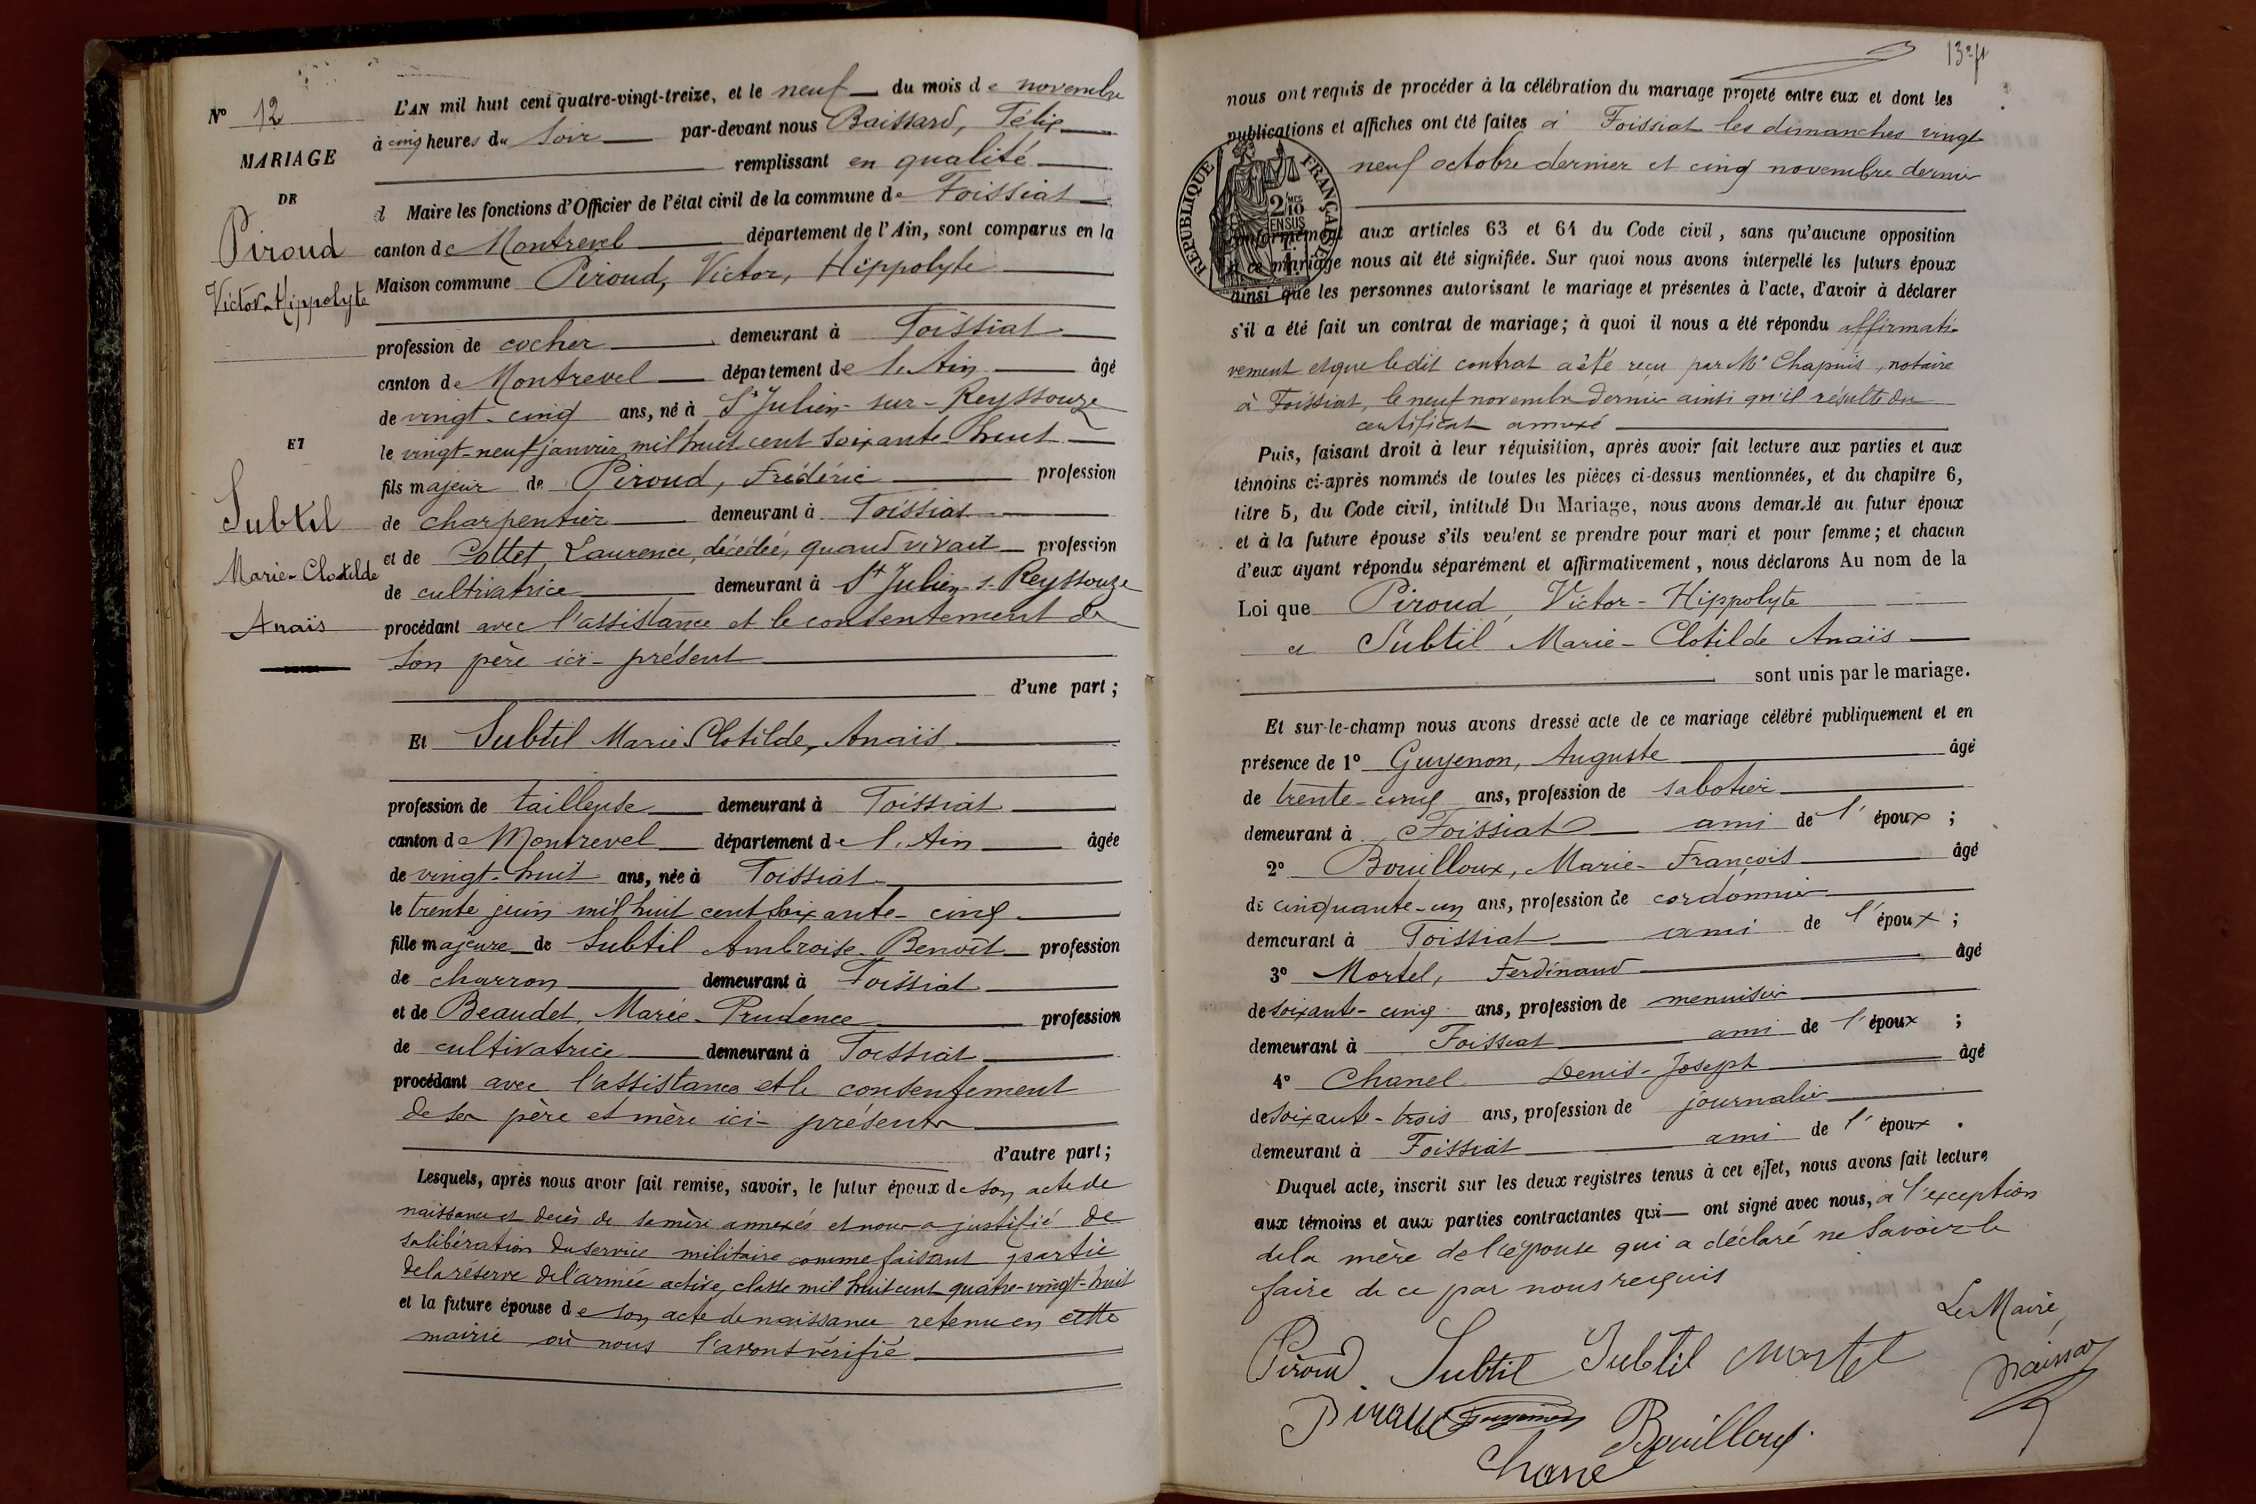 Nº 12
MARIAGE
DE
Piroud
Victor-Hippolyte
ET
Subtil
Marie-Clotilde
Anaïs
L'AN mil huit cent quatre-vingt-treize, et le neuf du mois de novembre
à cinq heures du soir par-devant nous Baissard, Félix
remplissant en qualité
d Maire les fonctions d'Officier de l'état civil de la commune de Foissiat
canton de Montrevel département de l'Ain, sont comparus en la
Maison commune Piroud, Victor, Hippolyte
profession de cocher demeurant à Foissiat
canton de Montrevel département de l'Ain âgé
de vingt-cinq ans, né à St Julien-sur-Reyssouze
le vingt-neuf janvier mil huit cent soixante-huit
fils majeur de Piroud, Frédéric profession
de charpentier demeurant à Foissiat
et de Cottet, Laurence, décédée, quand vivait profession
de cultivatrice demeurant à St Julien-s-Reyssouze
procédant avec l'assistance et le consentement de
son père ici-présent
d'une part ;
Et Subtil Marie Clotilde, Anaïs
profession de tailleuse demeurant à Foissiat
canton de Montrevel département de l'Ain âgée
de vingt-huit ans, née à Foissiat
le trente juin mil huit cent soixante-cinq
fille majeure de Subtil Ambroise-Benoît profession
de charron demeurant à Foissiat
et de Beaudet, Marie-Prudence profession
de cultivatrice demeurant à Foissiat
procédant avec l'assistance et le consentement
de ses père et mère ici-présents
d'autre part ;
Lesquels, après nous avoir fait remise, savoir, le futur époux de son acte de
naissance et décès de sa mère annexés et nous a justifié de
sa libération du service militaire comme faisant partie
de la réserve de l'armée active, classe mil huit cent quatre-vingt-huit
et la future épouse de son acte de naissance retenu en cette
mairie où nous l'avons vérifié
13 
nous ont requis de procéder à la célébration du mariage projeté entre eux et dont les
publications et affiches ont été faites à Foissiat les dimanches vingt
neuf octobre dernier et cinq novembre dernier
RÉPUBLIQUE FRANÇAISE
2/10 EN SUS
conformément aux articles 63 et 64 du Code civil, sans qu'aucune opposition
à ce mariage nous ait été signifiée. Sur quoi nous avons interpellé les futurs époux
ainsi que les personnes autorisant le mariage et présentes à l'acte, d'avoir à déclarer
s'il a été fait un contrat de mariage ; à quoi il nous a été répondu affirmati-
vement et que le dit contrat a été reçu par Me Chapuis, notaire
à Foissiat, le neuf novembre dernier ainsi qu'il résulte du
certificat annexé
Puis, faisant droit à leur réquisition, après avoir fait lecture aux parties et aux
témoins ci-après nommés de toutes les pièces ci-dessus mentionnées, et du chapitre 6,
titre 5, du Code civil, intitulé Du Mariage, nous avons demandé au futur époux
et à la future épouse s'ils veulent se prendre pour mari et pour femme ; et chacun
d'eux ayant répondu séparément et affirmativement, nous déclarons Au nom de la
Loi que Piroud, Victor-Hippolyte
et Subtil Marie-Clotilde Anaïs
sont unis par le mariage.
Et sur-le-champ nous avons dressé acte de ce mariage célébré publiquement et en
présence de 1º Guyenon, Auguste âgé
de trente-cinq ans, profession de sabotier
demeurant à Foissiat ami de l'époux ;
2º Bouilloux, Marie-François âgé
de cinquante-un ans, profession de cordonnier
demeurant à Foissiat ami de l'époux ;
3º Mortel, Ferdinand âgé
de soixante-cinq ans, profession de menuisier
demeurant à Foissiat ami de l'époux ;
4º Chanel Denis-Joseph âgé
de soixante-trois ans, profession de journalier
demeurant à Foissiat ami de l'époux.
Duquel acte, inscrit sur les deux registres tenus à cet effet, nous avons fait lecture
aux témoins et aux parties contractantes qui ont signé avec nous, à l'exception
de la mère de l'épouse qui a déclaré ne savoir le
faire de ce par nous requis
Le Maire,
Piroud Subtil Subtil Mortel
Piroud Guyenon Bouilloux
Chanel